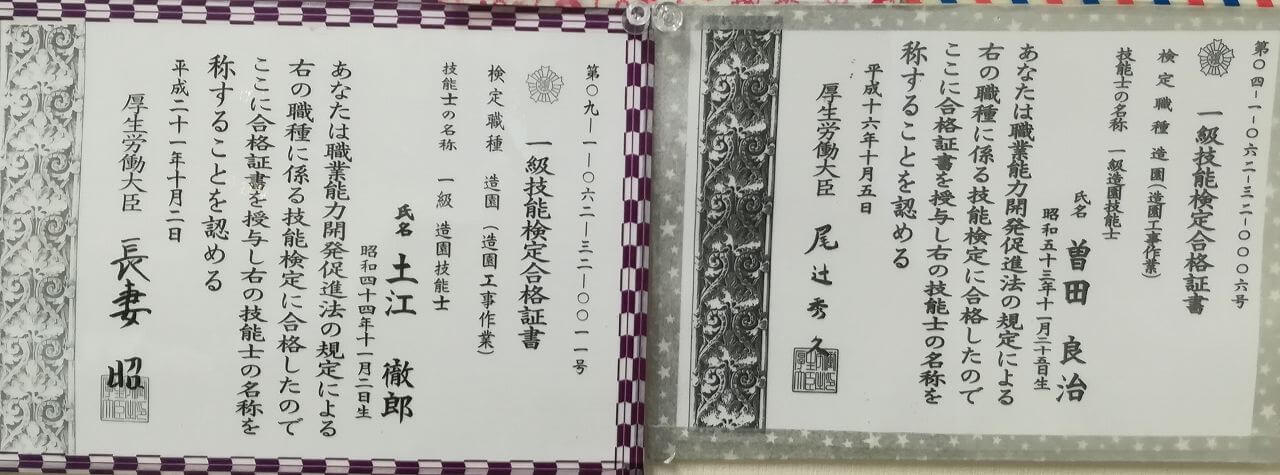 第〇四－１－〇六二－三二－〇〇〇六号
一級技能検定合格証書
検定職種 造園(造園工事作業)
技能士の名称 一級造園技能士
氏名 曽田 良治
昭和五十三年十一月二十五日生
あなたは職業能力開発促進法の規定による
右の職種に係る技能検定に合格したので
ここに合格証書を授与し右の技能士の名称を
称することを認める
平成十六年十月五日
厚生労働大臣 尾辻秀久
第〇九－１－〇六二－三二－〇〇一一号
一級技能検定合格証書
検定職種 造園(造園工事作業)
技能士の名称 一級 造園技能士
氏名 土江 徹郎
昭和四十四年十一月二日生
あなたは職業能力開発促進法の規定による
右の職種に係る技能検定に合格したので
ここに合格証書を授与し右の技能士の名称を
称することを認める
平成二十一年十月二日
厚生労働大臣 長妻 昭